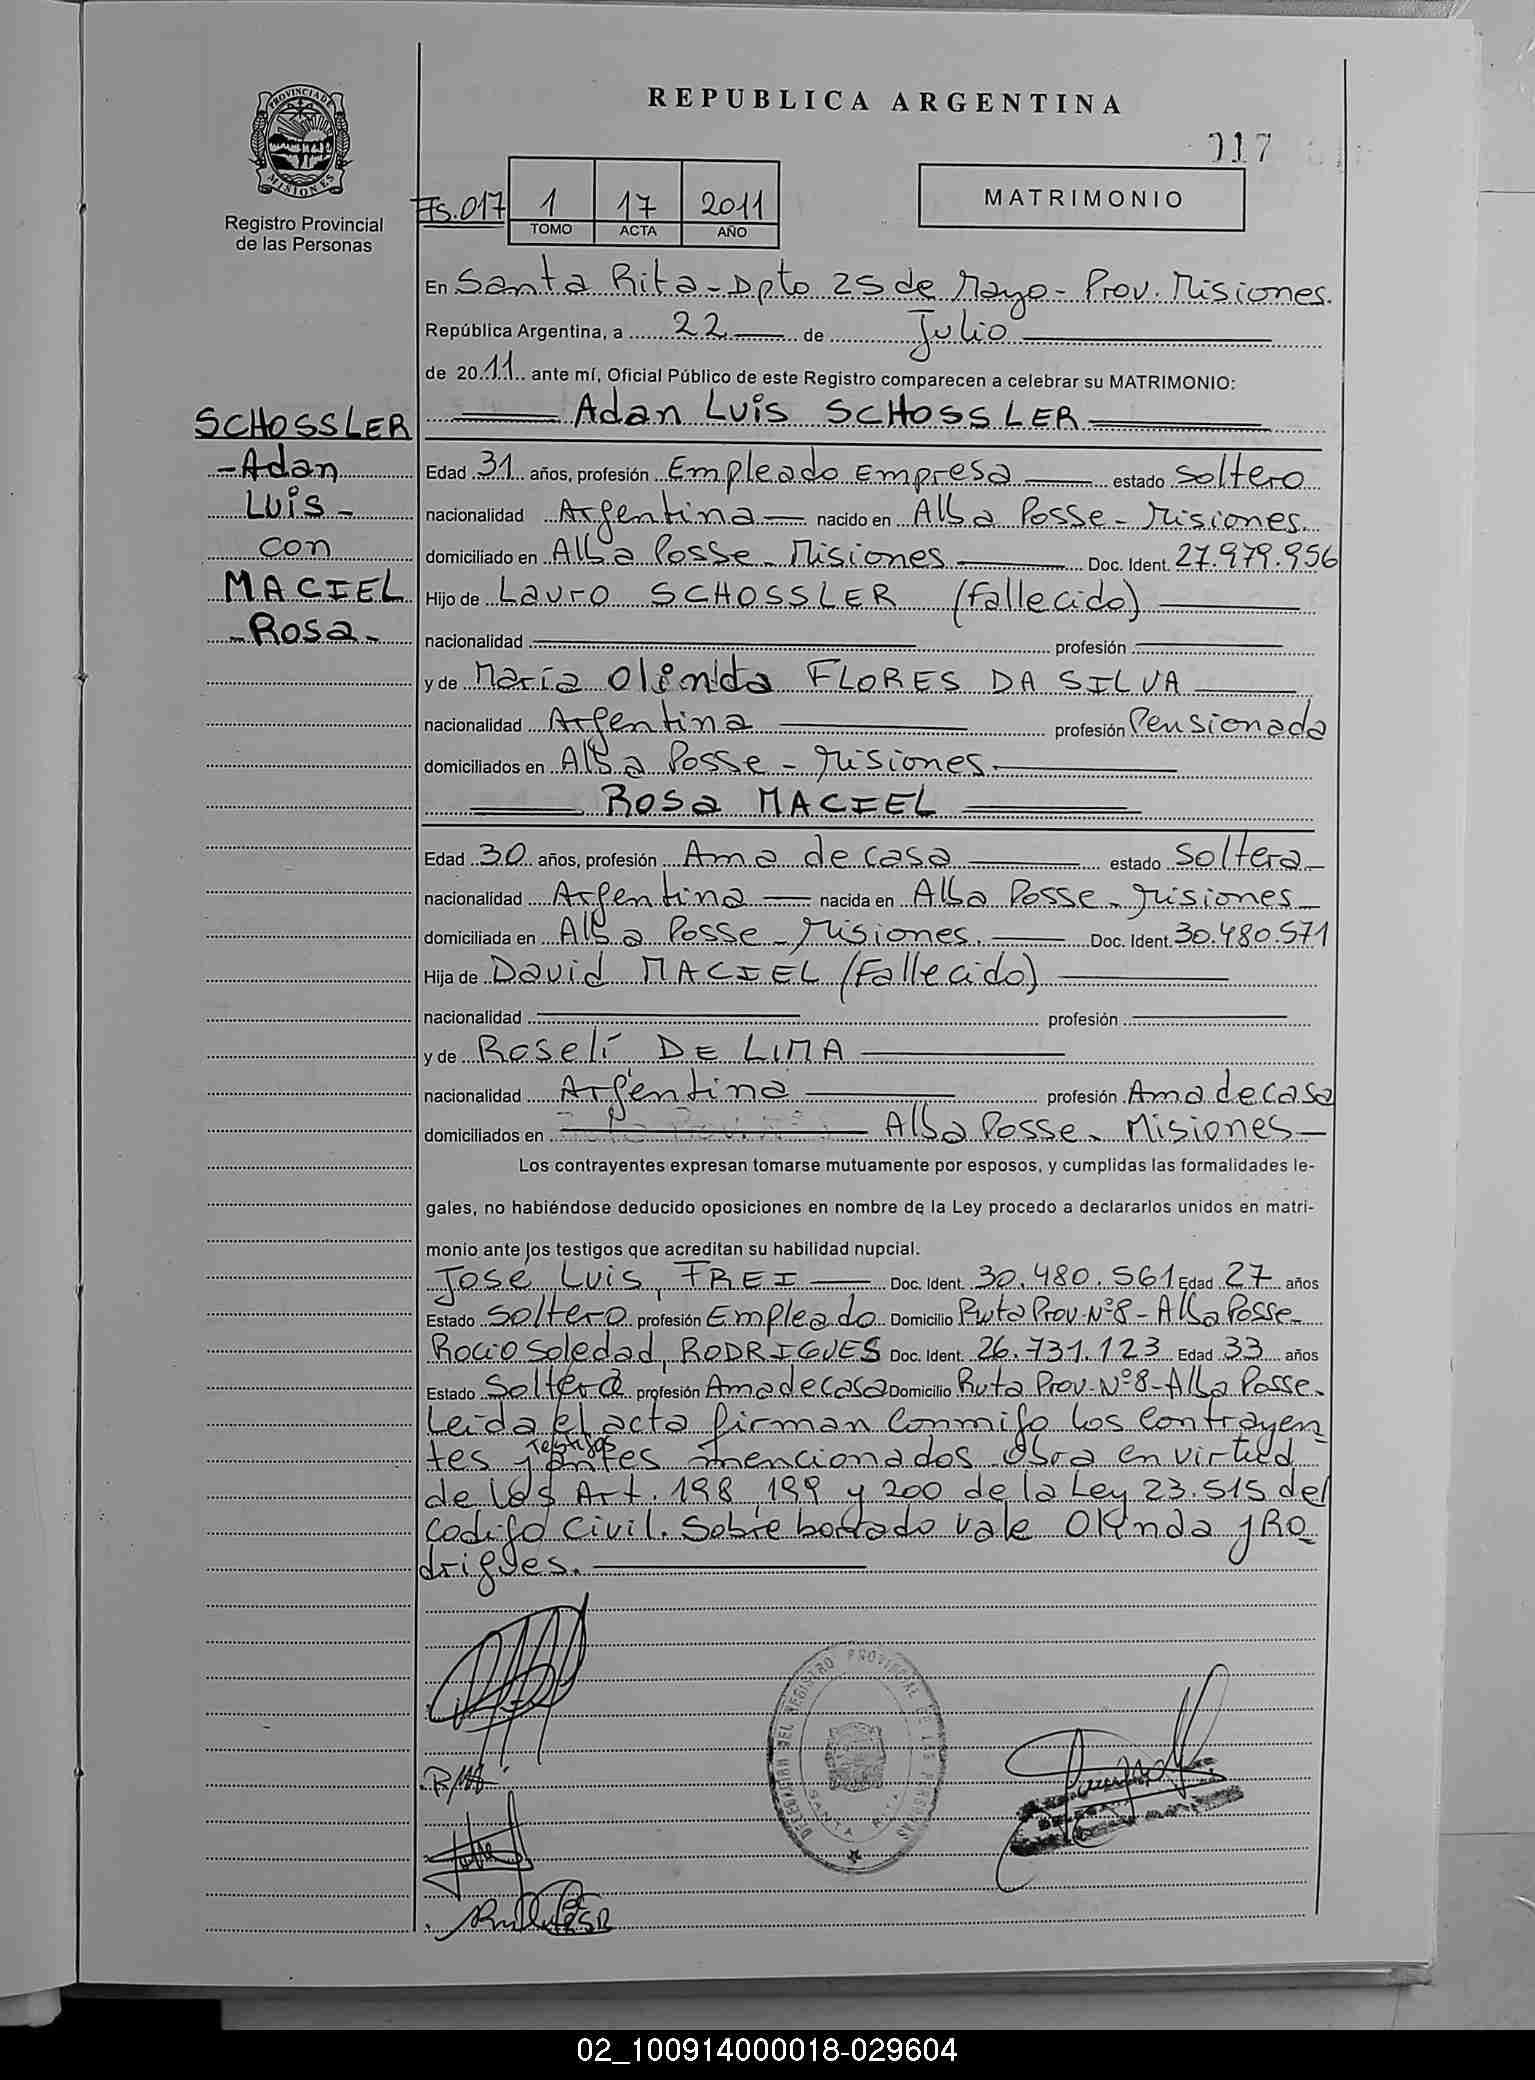 REPUBLICA ARGENTINA
017
PROVINCIA DE MISIONES
Registro Provincial
de las Personas
Fs. 017
1 17 2011
TOMO ACTA AÑO
MATRIMONIO
En Santa Rita - Dpto 25 de Mayo - Prov. Misiones.
República Argentina, a 22 de Julio
de 2011 ante mí, Oficial Público de este Registro comparecen a celebrar su MATRIMONIO:
Adan Luis SCHOSSLER
SCHOSSLER
- Adan
Luis -
con
MACIEL
- Rosa -
Edad 31 años, profesión Empleado Empresa estado Soltero
nacionalidad Argentina nacido en Alba Posse - Misiones.
domiciliado en Alba Posse - Misiones Doc. Ident. 27.979.956
Hijo de Lauro SCHOSSLER (Fallecido)
nacionalidad profesión
y de María Olinda FLORES DA SILVA
nacionalidad Argentina profesión Pensionada
domiciliados en Alba Posse - Misiones.
Rosa MACIEL
Edad 30 años, profesión Ama de casa estado Soltera
nacionalidad Argentina nacida en Alba Posse - Misiones
domiciliada en Alba Posse - Misiones. Doc. Ident. 30.480.571
Hija de David MACIEL (Fallecido)
nacionalidad profesión
y de Roselí DE LIMA
nacionalidad Argentina profesión Ama de casa
domiciliados en Alba Posse - Misiones
Los contrayentes expresan tomarse mutuamente por esposos, y cumplidas las formalidades le-
gales, no habiéndose deducido oposiciones en nombre de la Ley procedo a declararlos unidos en matri-
monio ante los testigos que acreditan su habilidad nupcial.
José Luis FREI Doc. Ident. 30.480.561 Edad 27 años
Estado Soltero profesión Empleado Domicilio Ruta Prov. Nº8 - Alba Posse
Rocio Soledad RODRIGUES Doc. Ident. 26.731.123 Edad 33 años
Estado Soltera profesión Ama de casa Domicilio Ruta Prov. Nº8 - Alba Posse.
Leida el acta firman conmigo los contrayen
testigos
tes y antes mencionados obra en virtud
de los Art. 198, 199 y 200 de la Ley 23.515 del
Codigo Civil. Sobre borrado vale Olinda y Ro
drigues.
DELEGACION DEL REGISTRO PROVINCIAL DE LAS PERSONAS
SANTA RITA
02_100914000018-029604